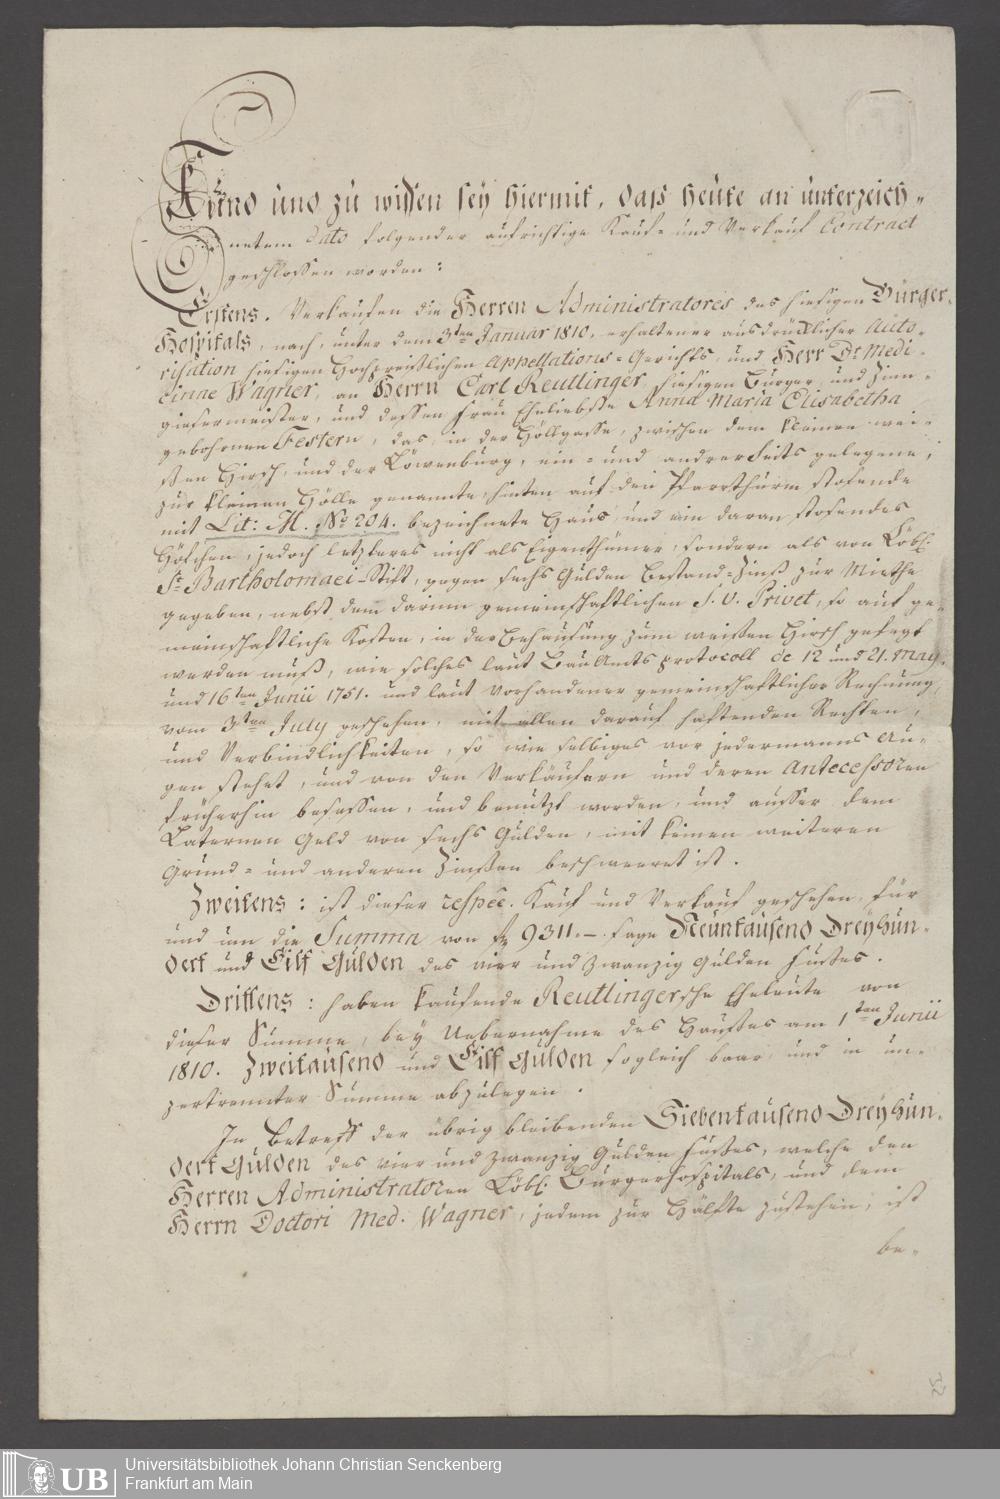 Kund und zu wissen sey hiermit, daß heute an unterzeich-
netem dato folgender aufrichtige Kauf- und Verkauf Contract
geschlossen worden:
Erstens. Verkaufen die Herren Administratores des hiesigen Bürger-
Hospitals, nach, unter dem 3ten Januar 1810. erhaltener ausdrücklicher Auto-
risation hiesigen Hochpreißlichen Appellations-Gerichts, und Herr Dr Medi-
cinae Wagner, an Herrn Carl Reutlinger, hiesigen Burger und Zinn-
giesermeister, und dessen Frau Eheliebste Anna Maria Elisabetha
gebohrnen Festern, das, in der Höllgasse, zwischen dem kleinen wei-
ßen Hirsch, und der Löwenburg, ein- und andrerseits gelegene,
zur kleinen Hölle genannte, hinten auf den Pfarrthurm stosende
mit Lit: M. No 204. bezeichnete Haus, und ein daran stosendes
Höfchen, jedoch letzteres nicht als Eigenthümer, sondern als von Löbl.
St Bartholomaei-Stift, gegen sechs Gulden Bestand-Zinß zur Miethe
gegeben, nebst dem darinn gemeinschaftlichen S. V. Privet, so auf ge-
meinschaftliche Kosten, in der Behausung zum weißen Hirsch gefegt
werden muß, wie solches laut BauAmts protocoll de 12 und 21. May,
und 16ten Junii 1751. und laut vorhandener gemeinschaftlicher Rechnung
vom 3ten July geschehen, mit allen darauf haftenden Rechten,
und Verbindlichkeiten, so wie selbiges vor jedermanns Au-
gen stehet, und von den Verkäufern und deren Antecessoren
früherhin besessen, und benutzt worden, und ausser dem
Laternen Geld von sechs Gulden, mit keinen weiteren
Grund- und anderen Zinßen beschweeret ist.
Zweitens: ist dieser respec. Kauf und Verkauf geschehen, für
und um die Summa von f 9311.–. sage Neuntausend Dreyhun-
dert und Eilf Gulden des vier und zwanzig Gulden Fußes.
Drittens: haben kaufende Reutlingersche Eheleute von
dieser Summe, bey Uebernahme des Haußes am 1ten Junii
1810. Zweitausend und Eilf Gulden sogleich baar, und in un-
zertrennter Summe abzulegen.
In Betreff der übrig bleibenden Siebentausend Dreyhun-
dert Gulden des vier und zwanzig Gulden Fußes, welche den
Herren Administratoren Löbl. Bürgerhospitals, und dem
Herrn Doctori Med. Wagner, jedem zur Hälfte zustehen, ist
be-
UB
Universitätsbibliothek Johann Christian Senckenberg
Frankfurt am Main